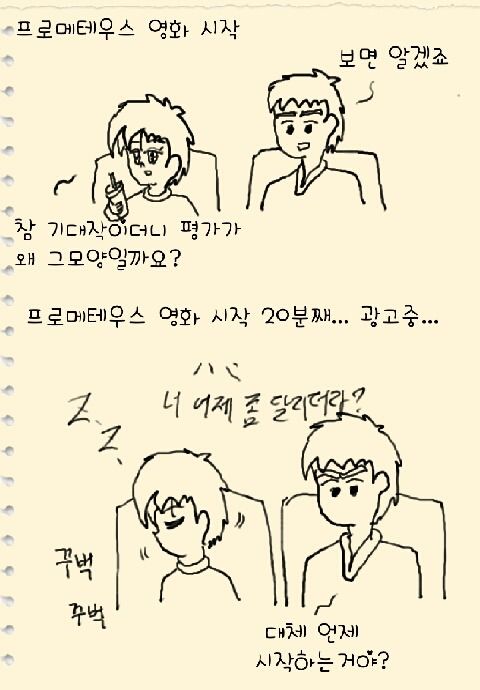 프로메테우스 영화 시작
보면 알겠죠
참 기대작이더니 평가가
왜 그모양일까요?
프로메테우스 영화 시작 20분째... 광고중...
너 어제 좀 달리더라?
Z
Z
꾸벅
꾸벅
대체 언제
시작하는거야?